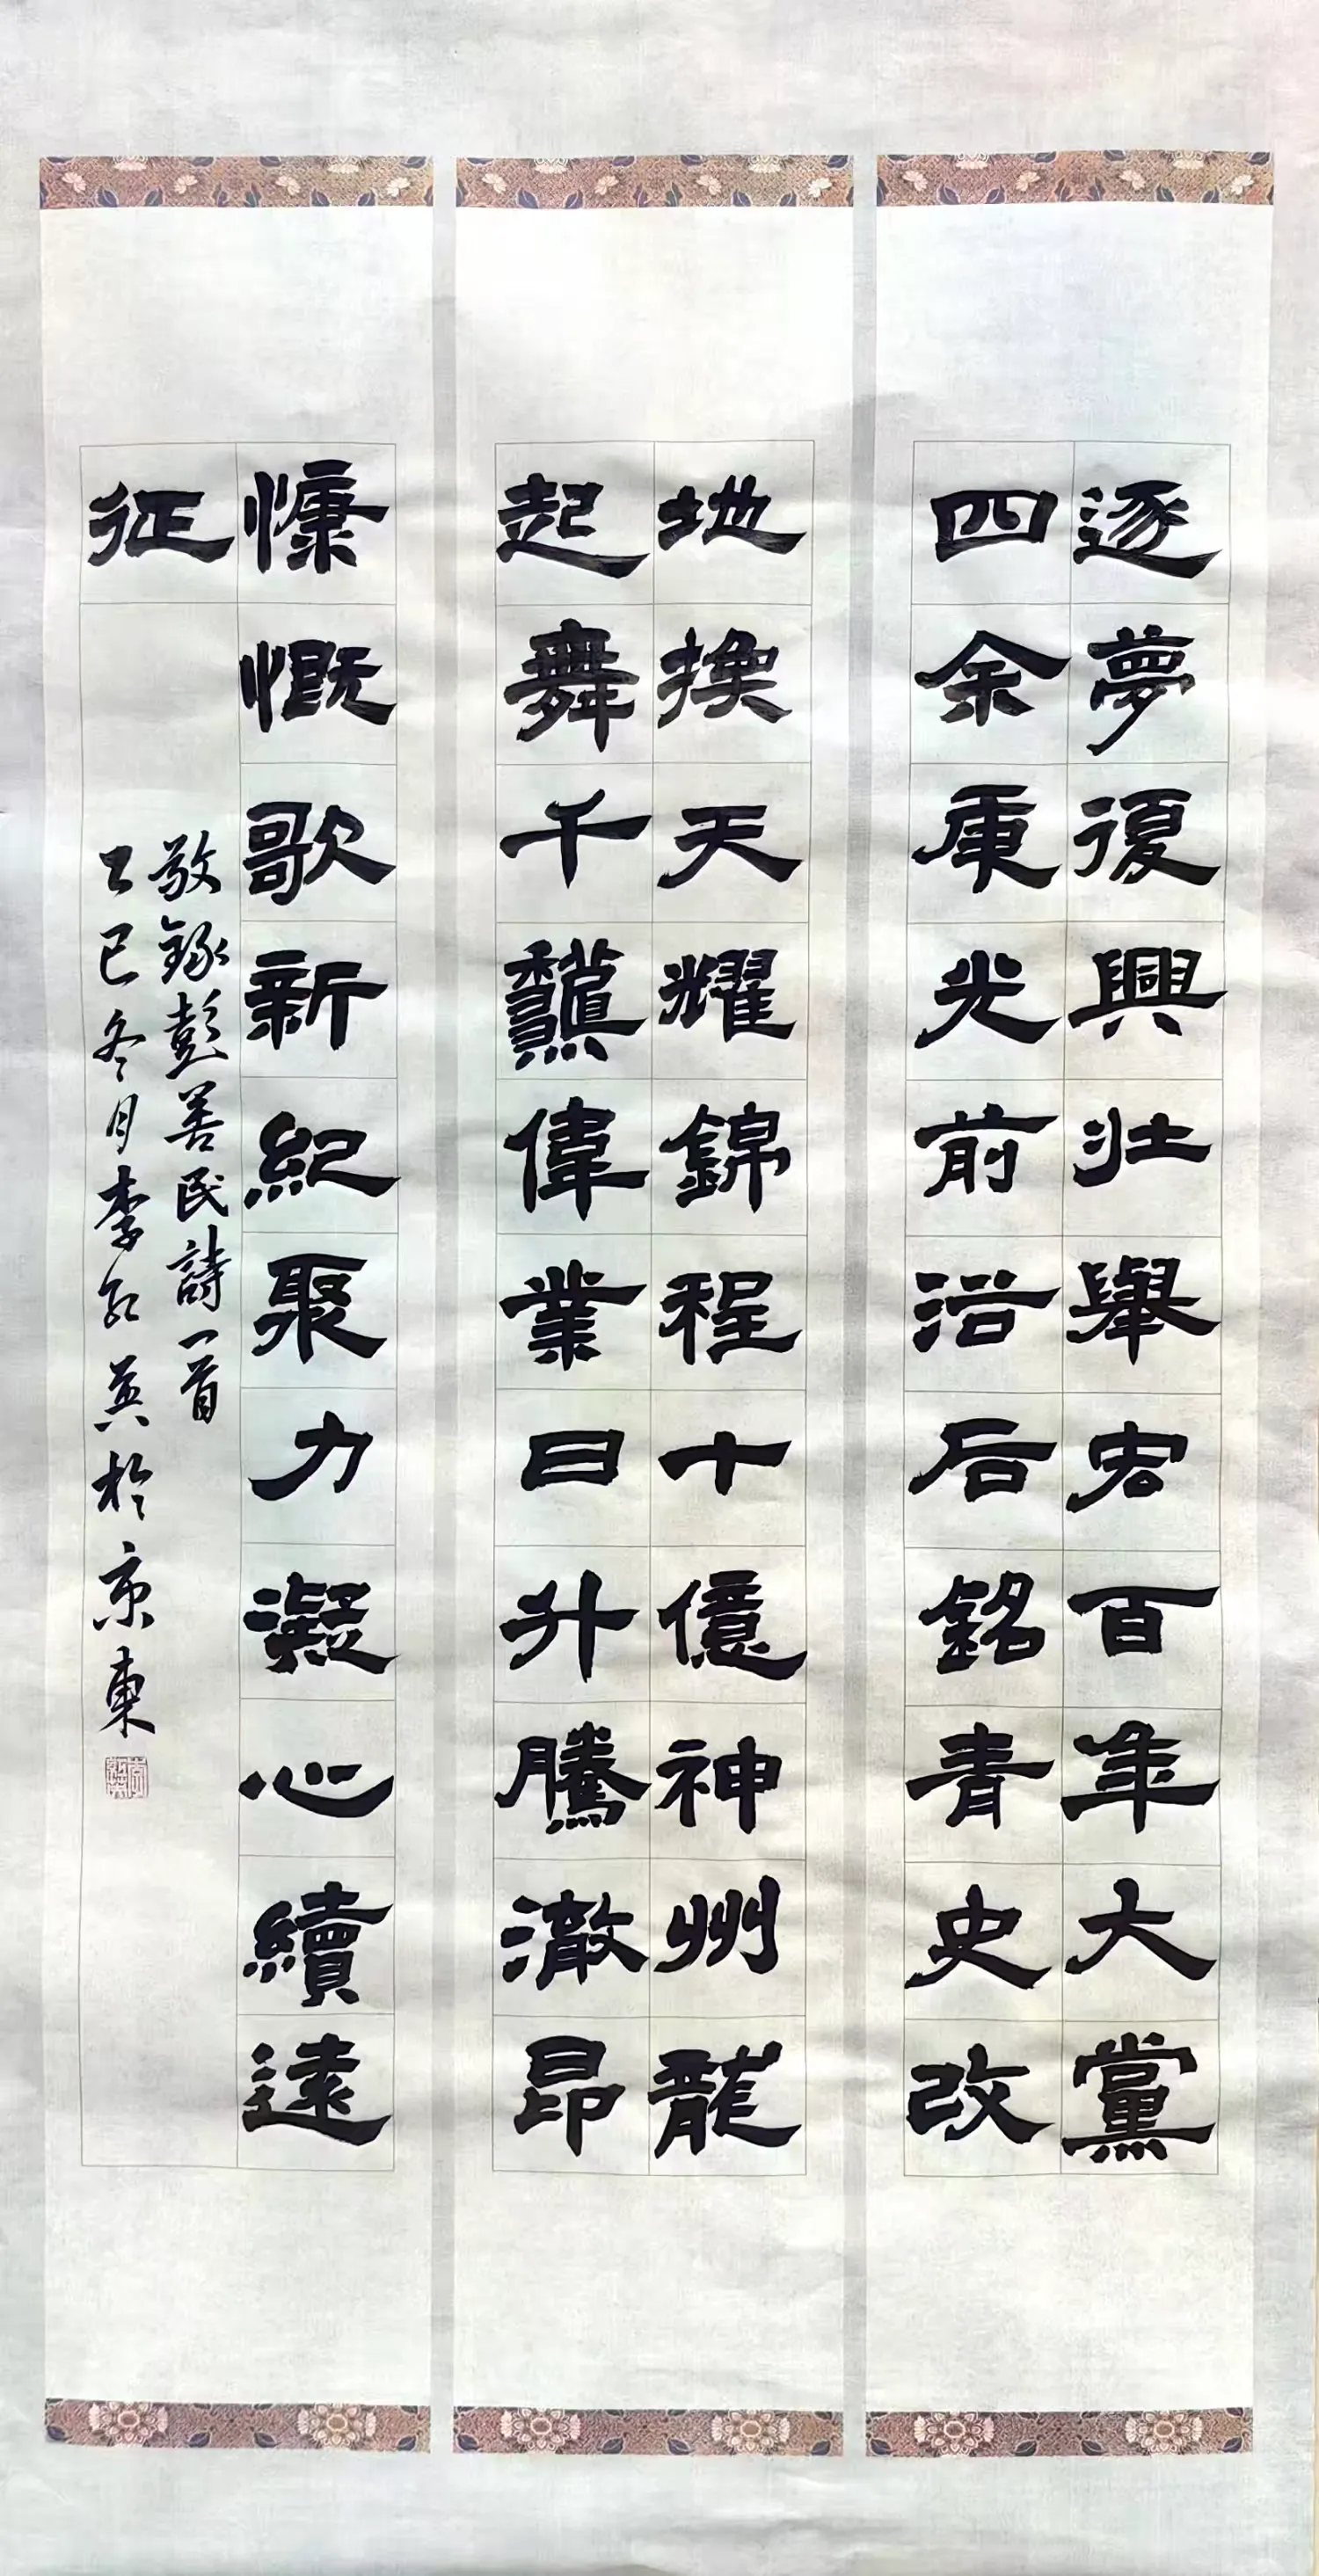 逐夢復興壯舉宏百年大黨
四余庚光前沿后銘青史改
地換天耀錦程十億神州龍
起舞千偉業日升騰激昂
慷慨歌新紀聚力凝心續遠
征
敬錄彭善民詩一首
乙巳冬月李紅英於京東